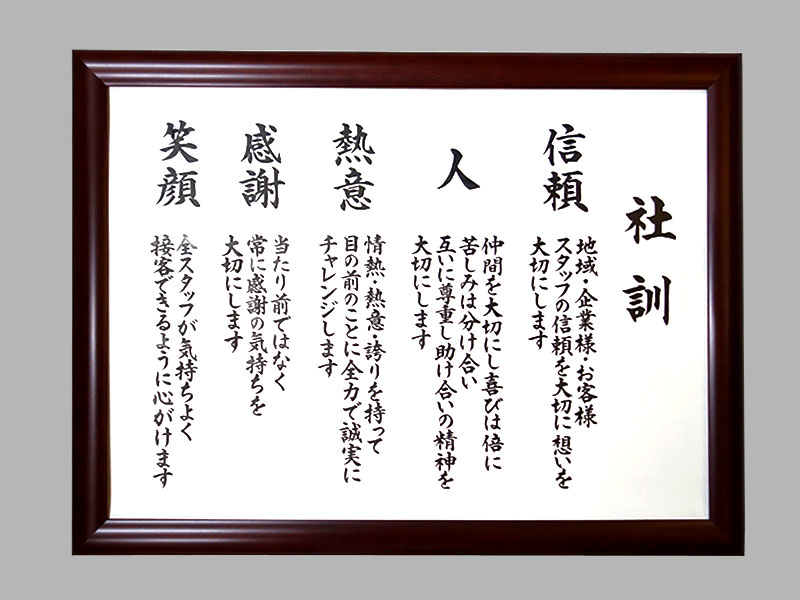 社訓
信頼
地域・企業様・お客様
スタッフの信頼を大切に想いを
大切にします
人
仲間を大切にし喜びは倍に
苦しみは分け合い
互いに尊重し助け合いの精神を
大切にします
熱意
情熱・熱意・誇りを持って
目の前のことに全力で誠実に
チャレンジします
感謝
当たり前ではなく
常に感謝の気持ちを
大切にします
笑顔
全スタッフが気持ちよく
接客できるように心がけます